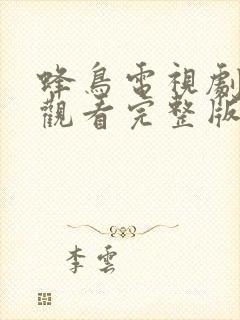 蜂鳥電視劇
觀看完整版
李雲